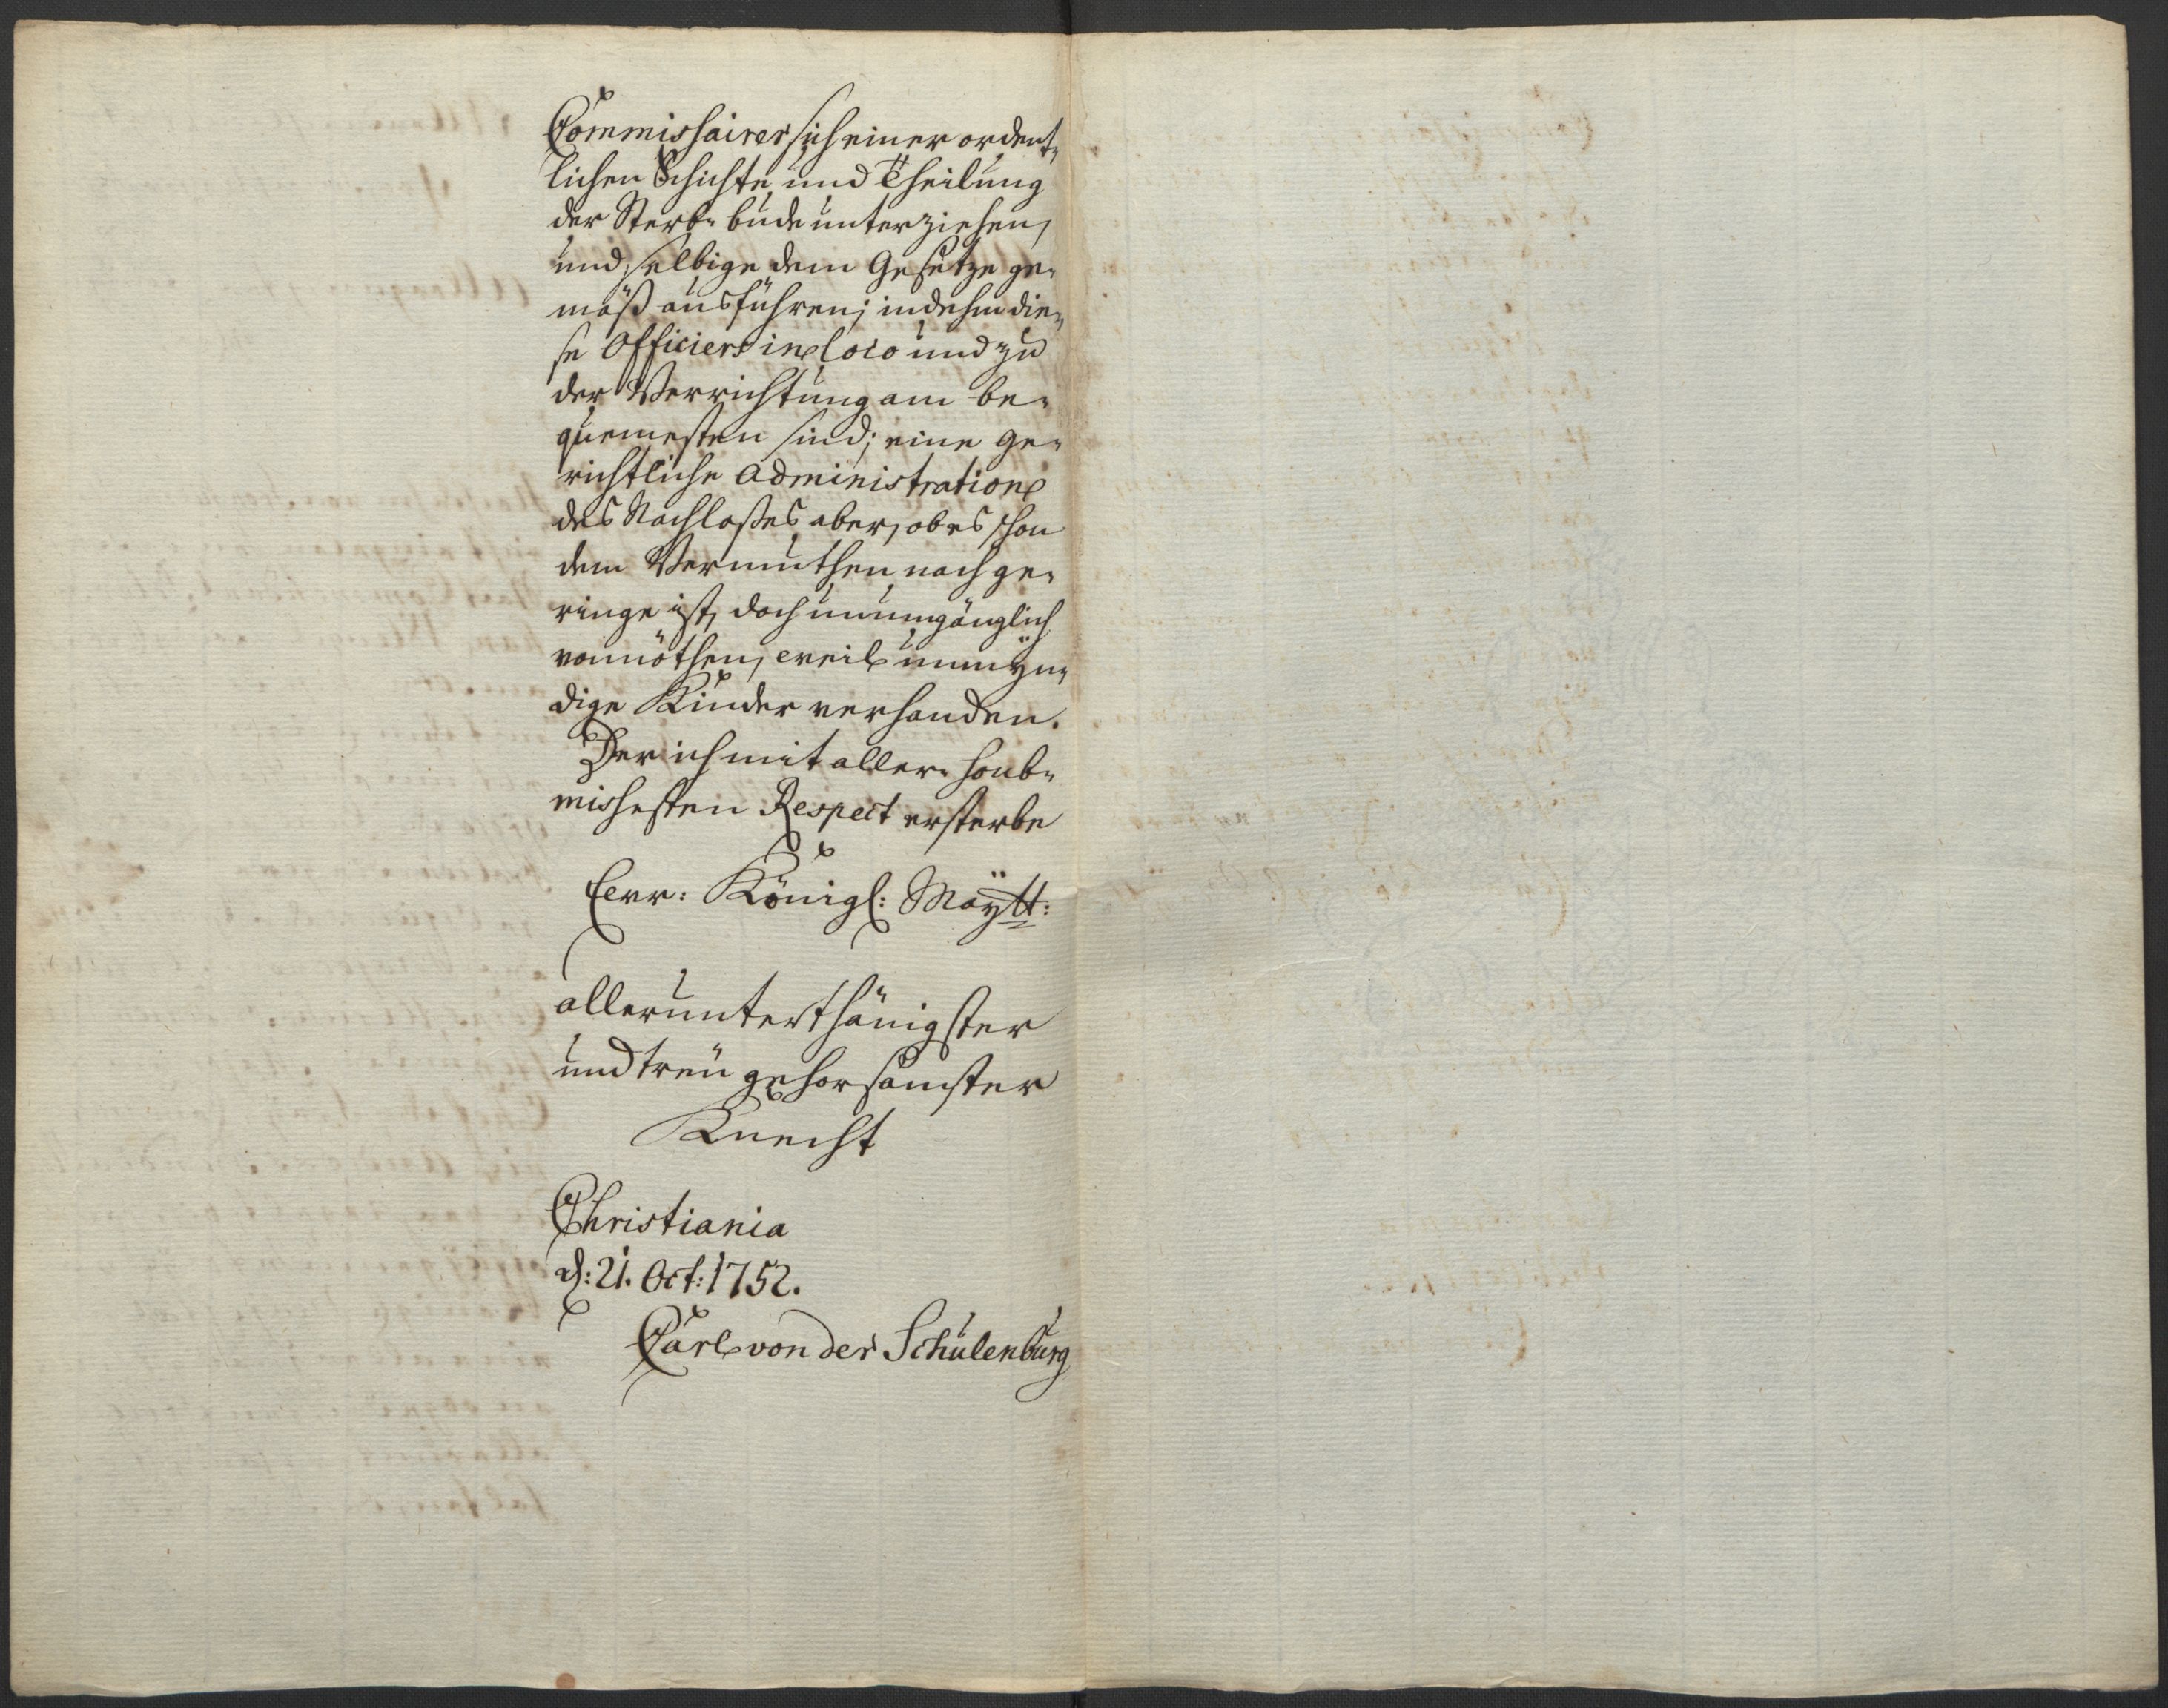 Commissaires sich einer ordent-
lichen Schichte und Theilung
der Sterb-bude unterziehen,
und selbige dem Gesetze ge-
mäß ausführen; indehm die-
se Officiers in loco und zu
der Verrichtung am be-
quemesten sind; eine ge-
richtliche Administration
des Nachlaßes aber, ob es schon
dem Vermuthen nach ge-
ringe ist, doch unumgänglich
vonnöthen, weil unmün-
dige Kinder verhanden.
Der ich mit aller-soub-
missesten Respect ersterbe
Ewr: Königl: Maÿtt:
allerunterthänigster
und treu gehorsamster
Knecht
Christiania
d: 21. Oct: 1752.
Carl von der Schulenburg